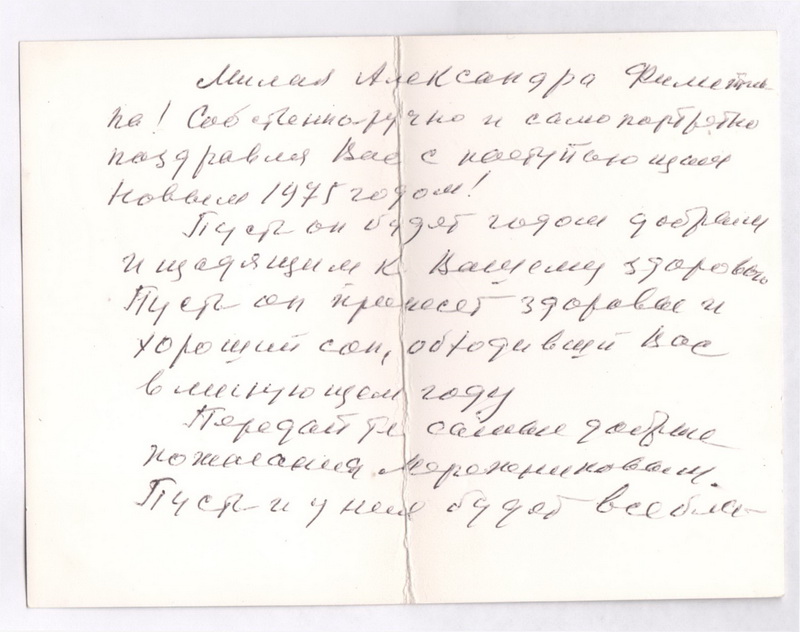 Милая Александра
на! Собственноручно и самопортретно
поздравля Вас с наступающим
Новым 1975 годом!
Пусть он будет годом добрым
и щадящим к Вашему здоровью
Пусть он принесет здоровье и
хороший сон, обходивший Вас
в минующем году
Передайте самые добрые
пожелания
Пусть и у них будет все бла-